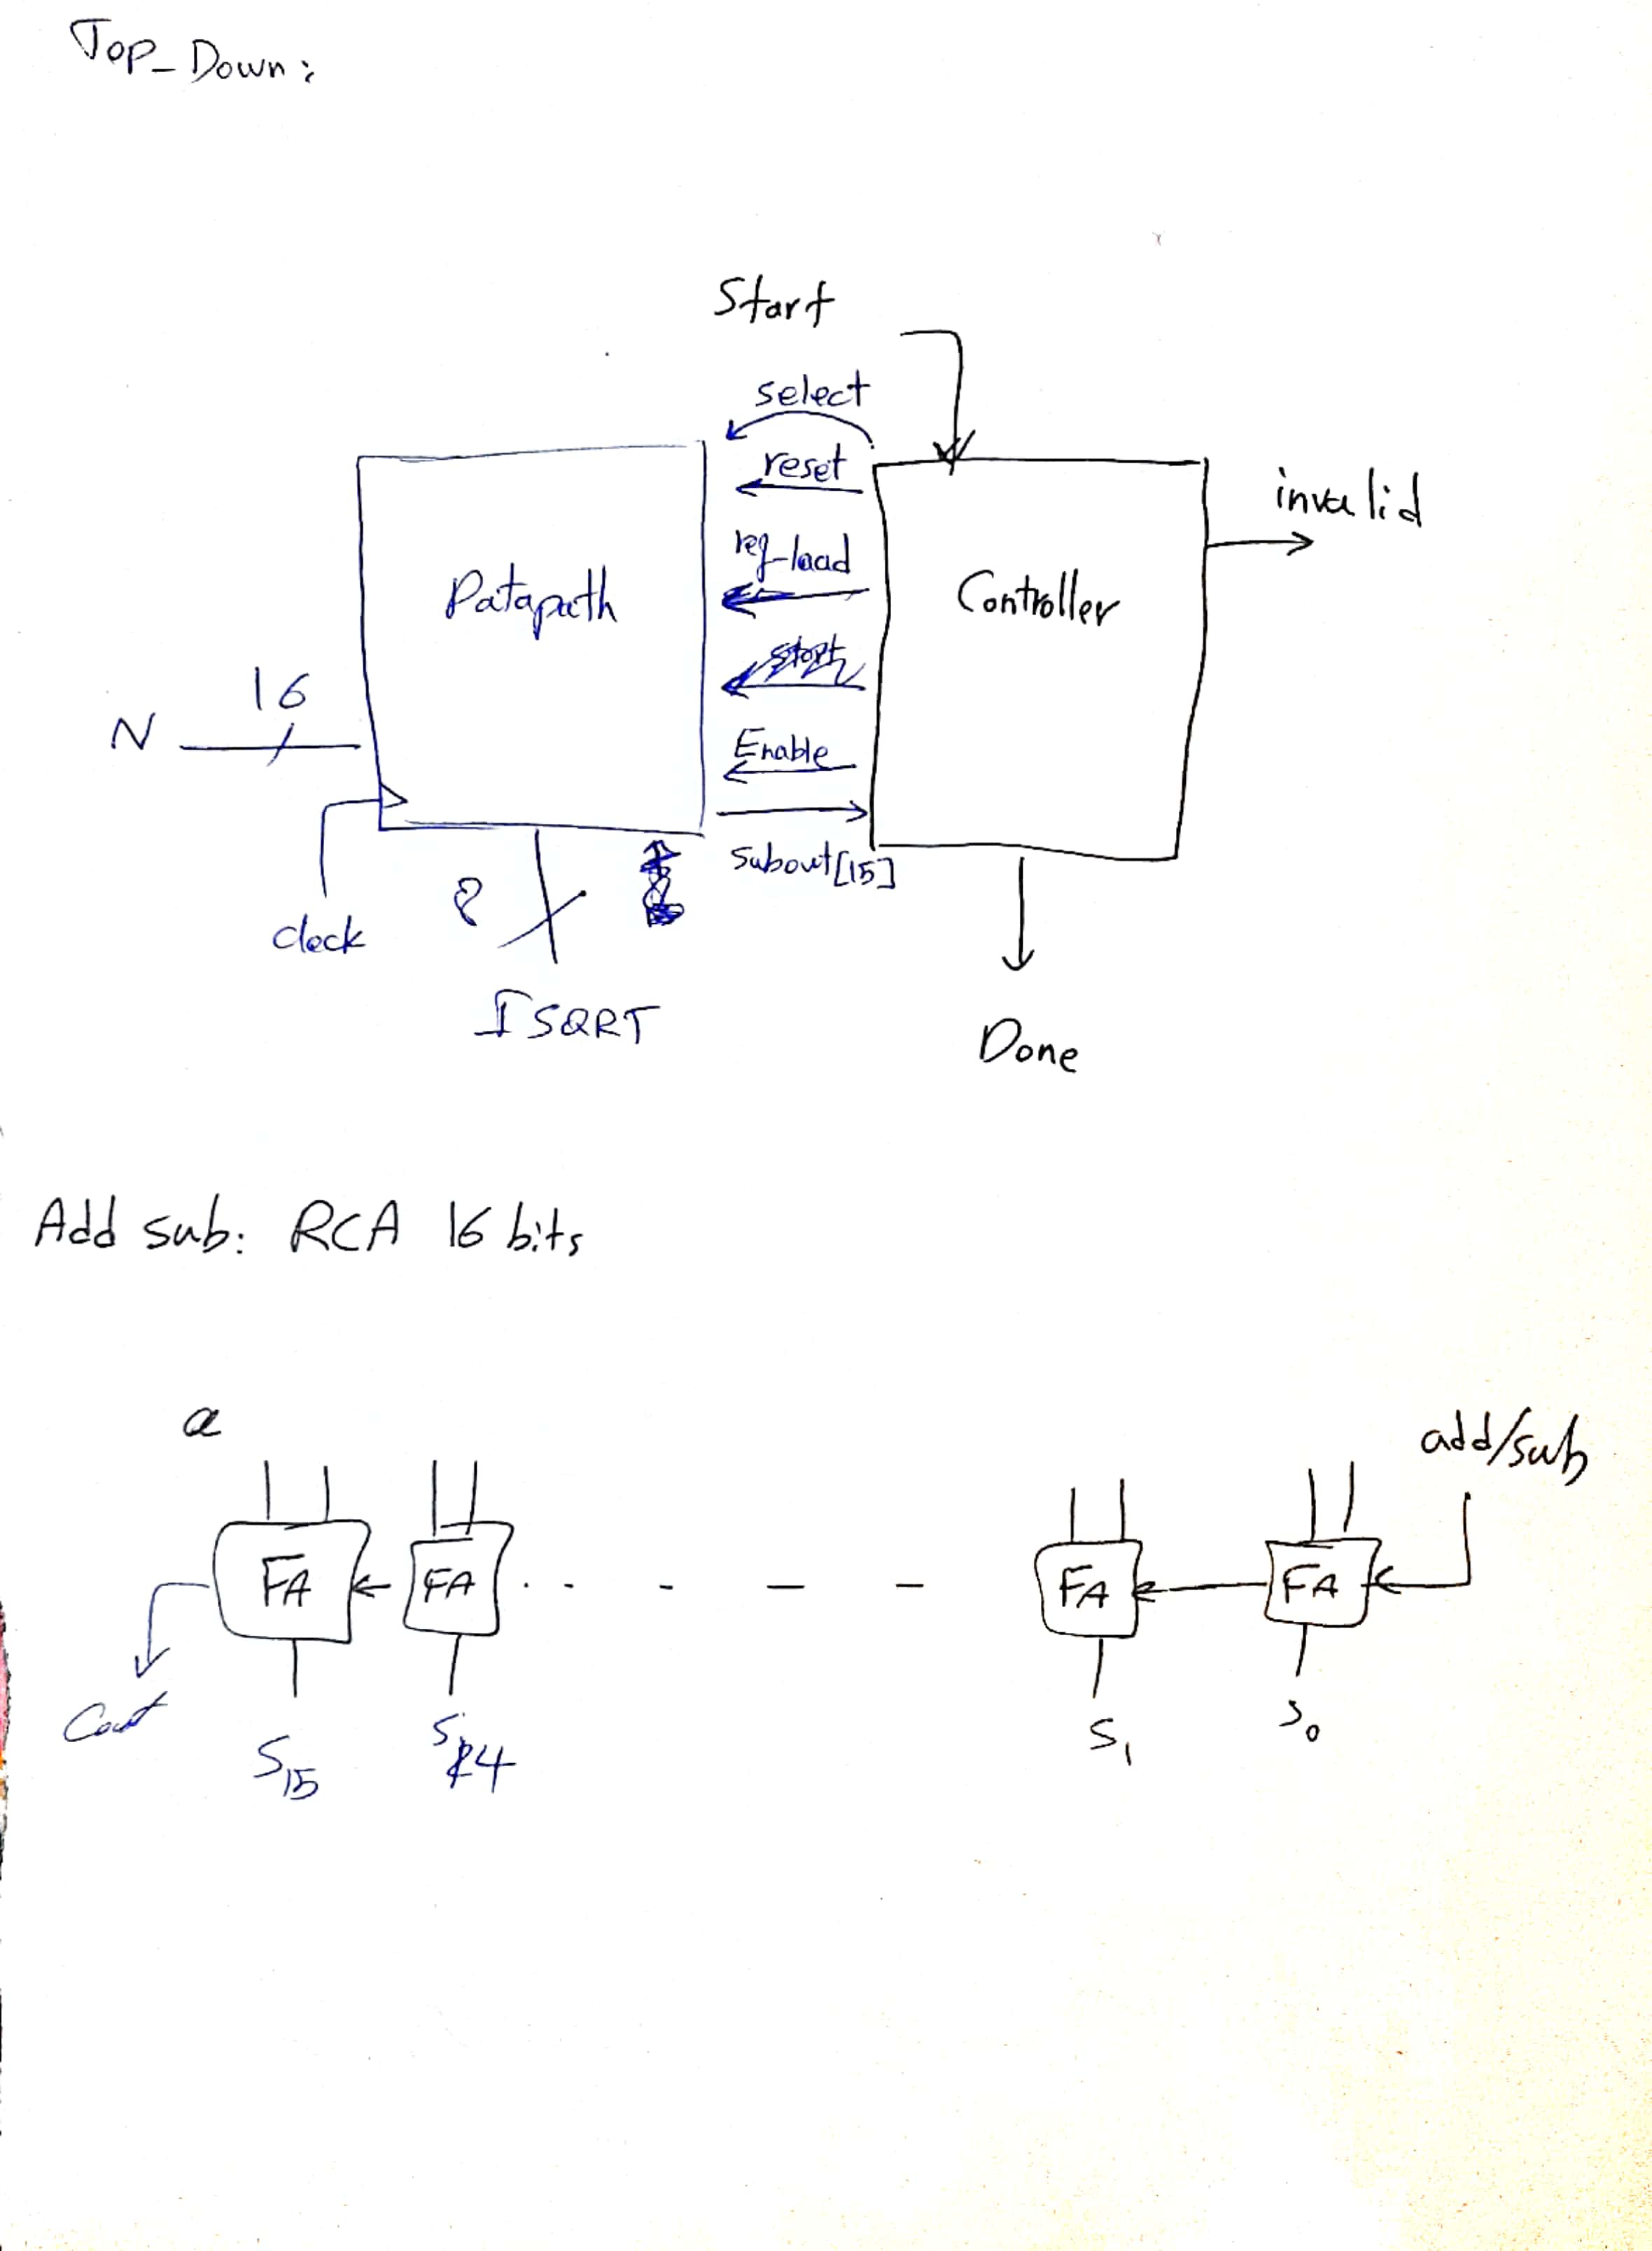 Top_Down:
Start
select
reset
reg_load
Enable
subout[15]
Datapath
Controller
invalid
N
16
clock
8
ISQRT
Done
Add sub: RCA 16 bits
a
add/sub
FA FA . - - - - FA FA
Cout
S15 S14 S1 S0